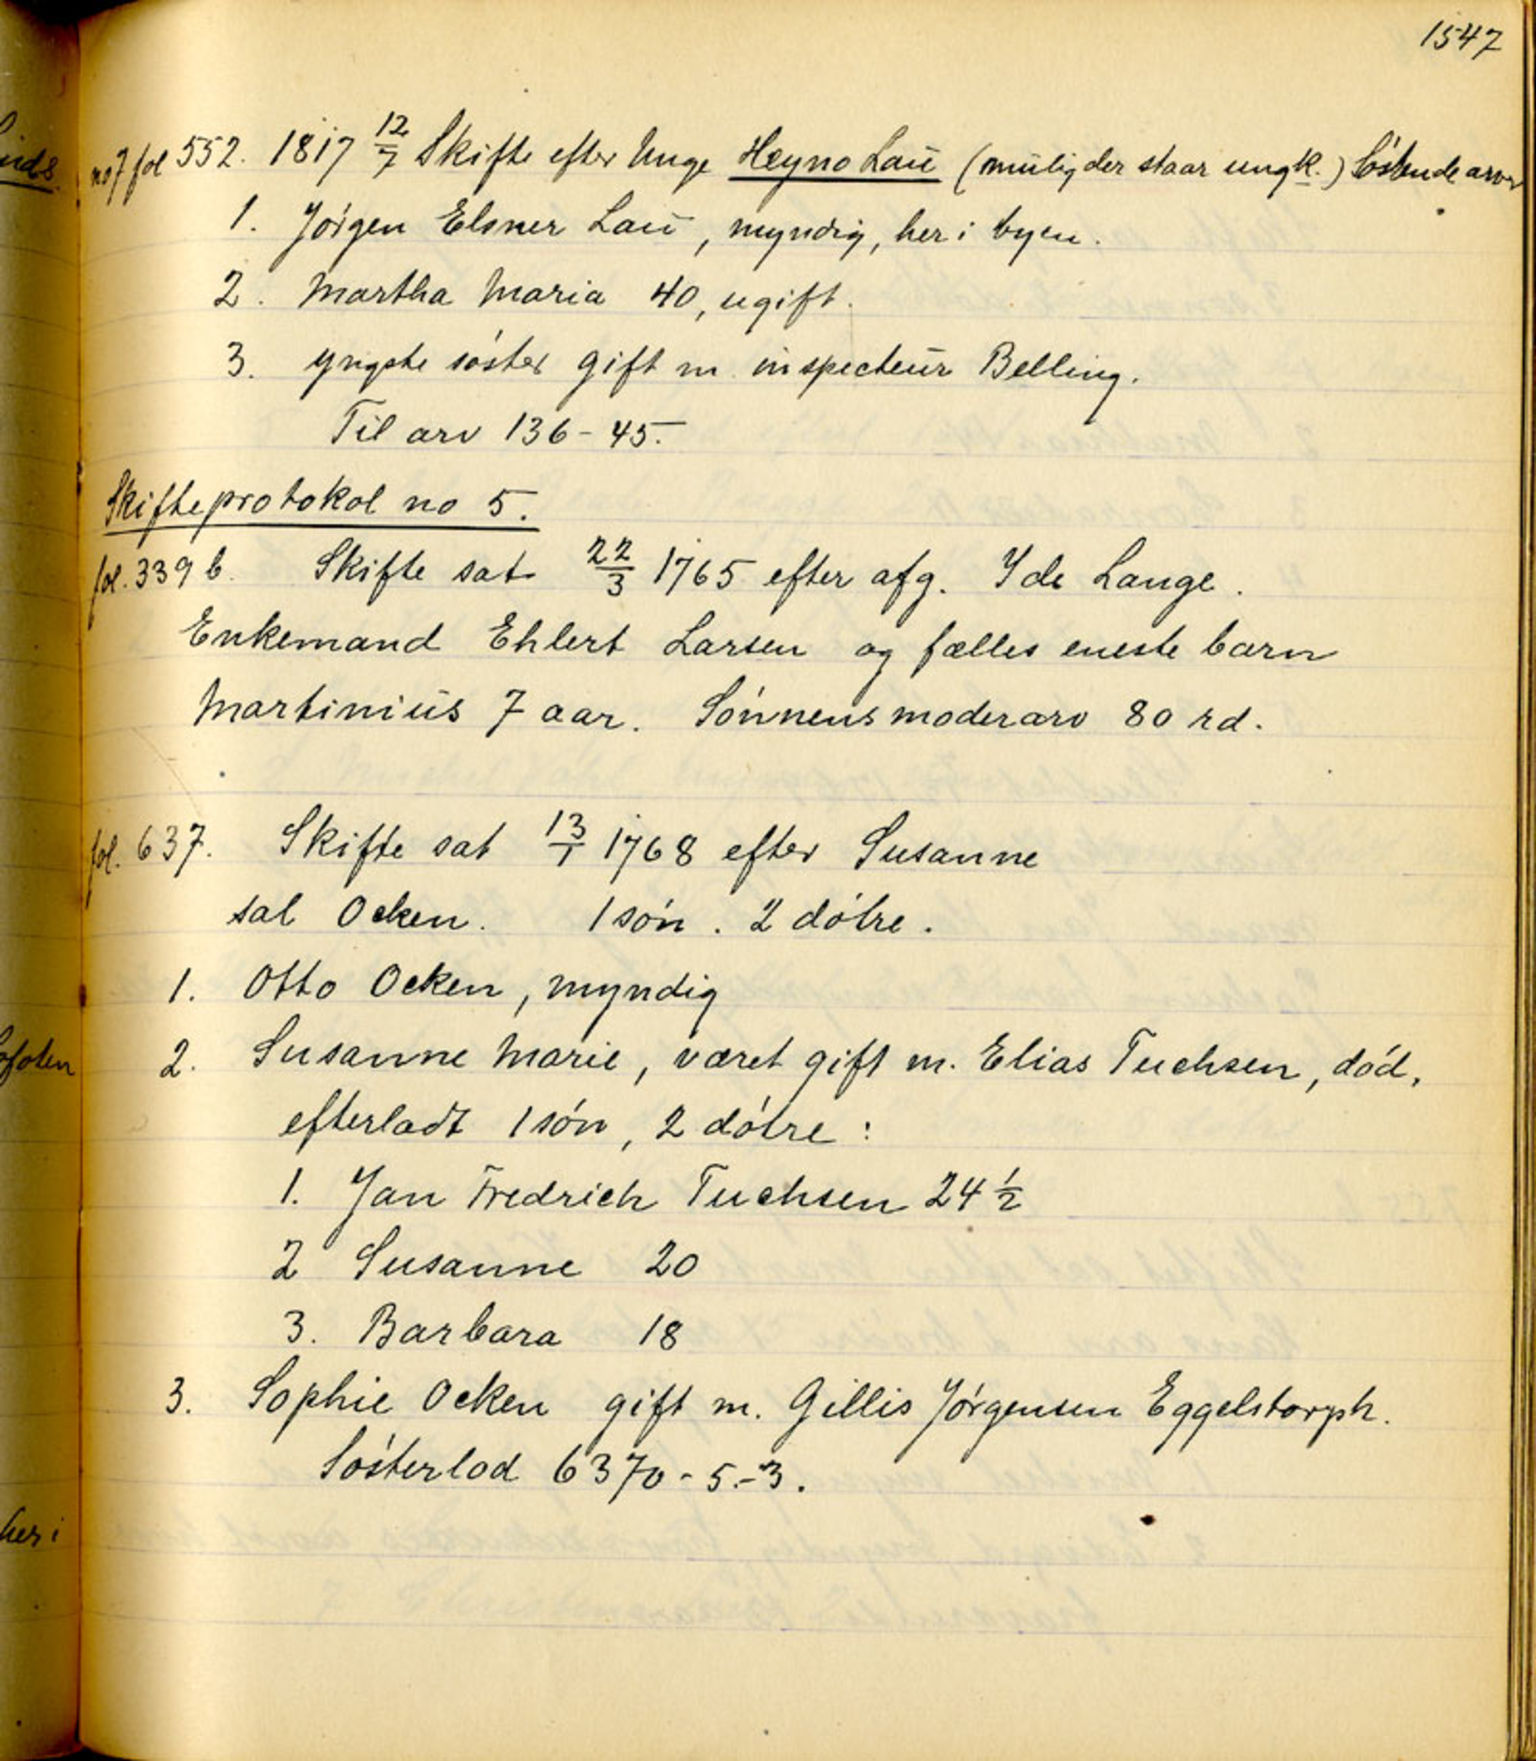 1547
no 7 fol 552. 1817 12/7 Skifte efter Unge Heyno Laü (mülig der staar ungk.) Söskende arver
1. Jörgen Elsner Laü, myndig, her i byen.
2. Martha Maria 40, ugift.
3. yngste söster gift m. inspecteür Belling.
Til arv 136-45.
Skifteprotokol no 5.
fol. 339 b. Skifte sat 22/3 1765 efter afg. Yde Lange.
Enkemand Ehlert Larsen og fælles eneste barn
Martiniüs 7 aar. Sönnens moderarv 80 rd.
fol. 637. Skifte sat 13/1 1768 efter Susanne
sal Ocken. 1 sön. 2 dötre.
1. Otto Ocken, myndig
2. Susanne Marie, været gift m. Elias Tuchsen, död,
efterladt 1 sön, 2 dötre:
1. Jan Fredrich Tuchsen 24 1/2
2 Susanne 20
3. Barbara 18
3. Sophie Ocken gift m. Gillis Jörgensen Eggelstorph.
Sösterlod 6370-5-3.
her i